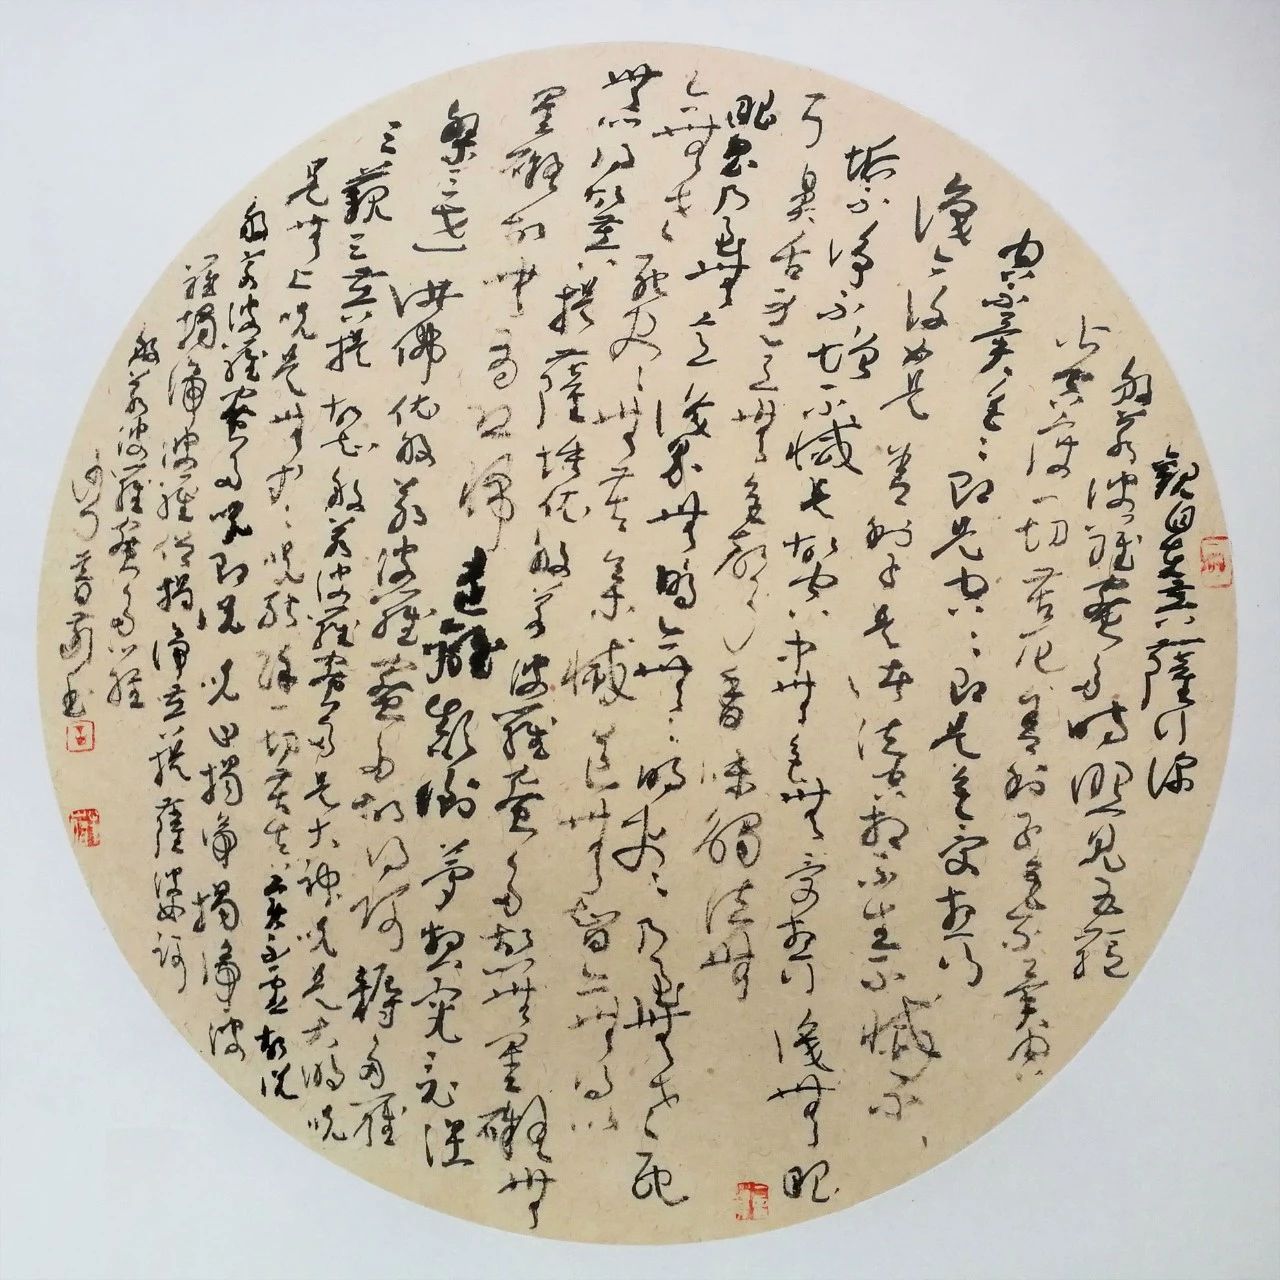 觀自在菩薩行深
般若波羅蜜多時照見五蘊
皆空度一切苦厄舍利子色不異空
空不異色色即是空空即是色受想行
識亦復如是舍利子是諸法空相不生不滅不
垢不淨不增不減是故空中無色無受想行識無眼
耳鼻舌身意無色聲香味觸法無
眼界乃至無意識界無無明亦無無明盡乃至無老死
亦無老死盡無苦集滅道無智亦無得以
無所得故菩提薩埵依般若波羅蜜多故無罣礙無
罣礙故無有恐怖遠離顛倒夢想究竟涅
槃三世諸佛依般若波羅蜜多故得阿耨多羅
三藐三菩提故知般若波羅蜜多是大神咒是大明咒
是無上咒是無等等咒能除一切苦真實不虛故說
般若波羅蜜多咒即說咒曰揭諦揭諦波
羅揭諦波羅僧揭諦菩提薩婆訶
般若波羅蜜多心經